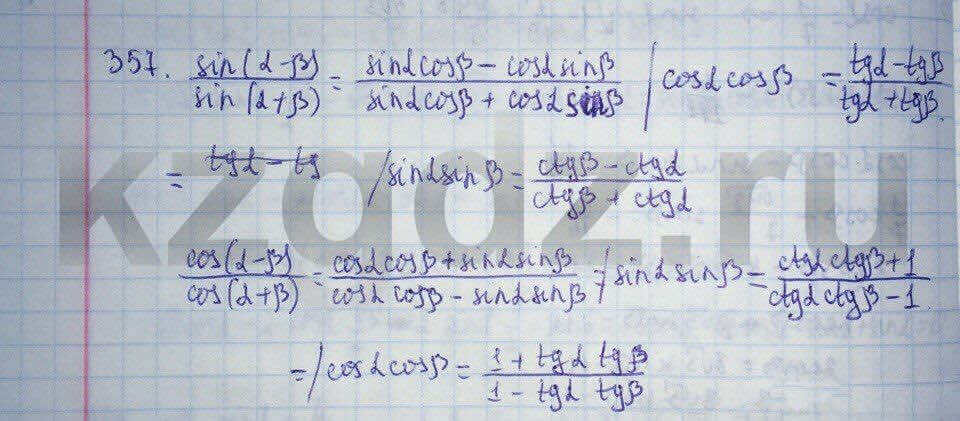 357. sin(α-β)/sin(α+β) = (sinα cosβ - cosα sinβ)/(sinα cosβ + cosα sinβ) / cosα cosβ = (tgα - tgβ)/(tgα + tgβ)
= tgα - tg / sinα sinβ = (ctgβ - ctgα)/(ctgβ + ctgα)
kzadz.ru
cos(α-β)/cos(α+β) = (cosα cosβ + sinα sinβ)/(cosα cosβ - sinα sinβ) = / sinα sinβ = (ctgα ctgβ + 1)/(ctgα ctgβ - 1)
= / cosα cosβ = (1 + tgα tgβ)/(1 - tgα tgβ)